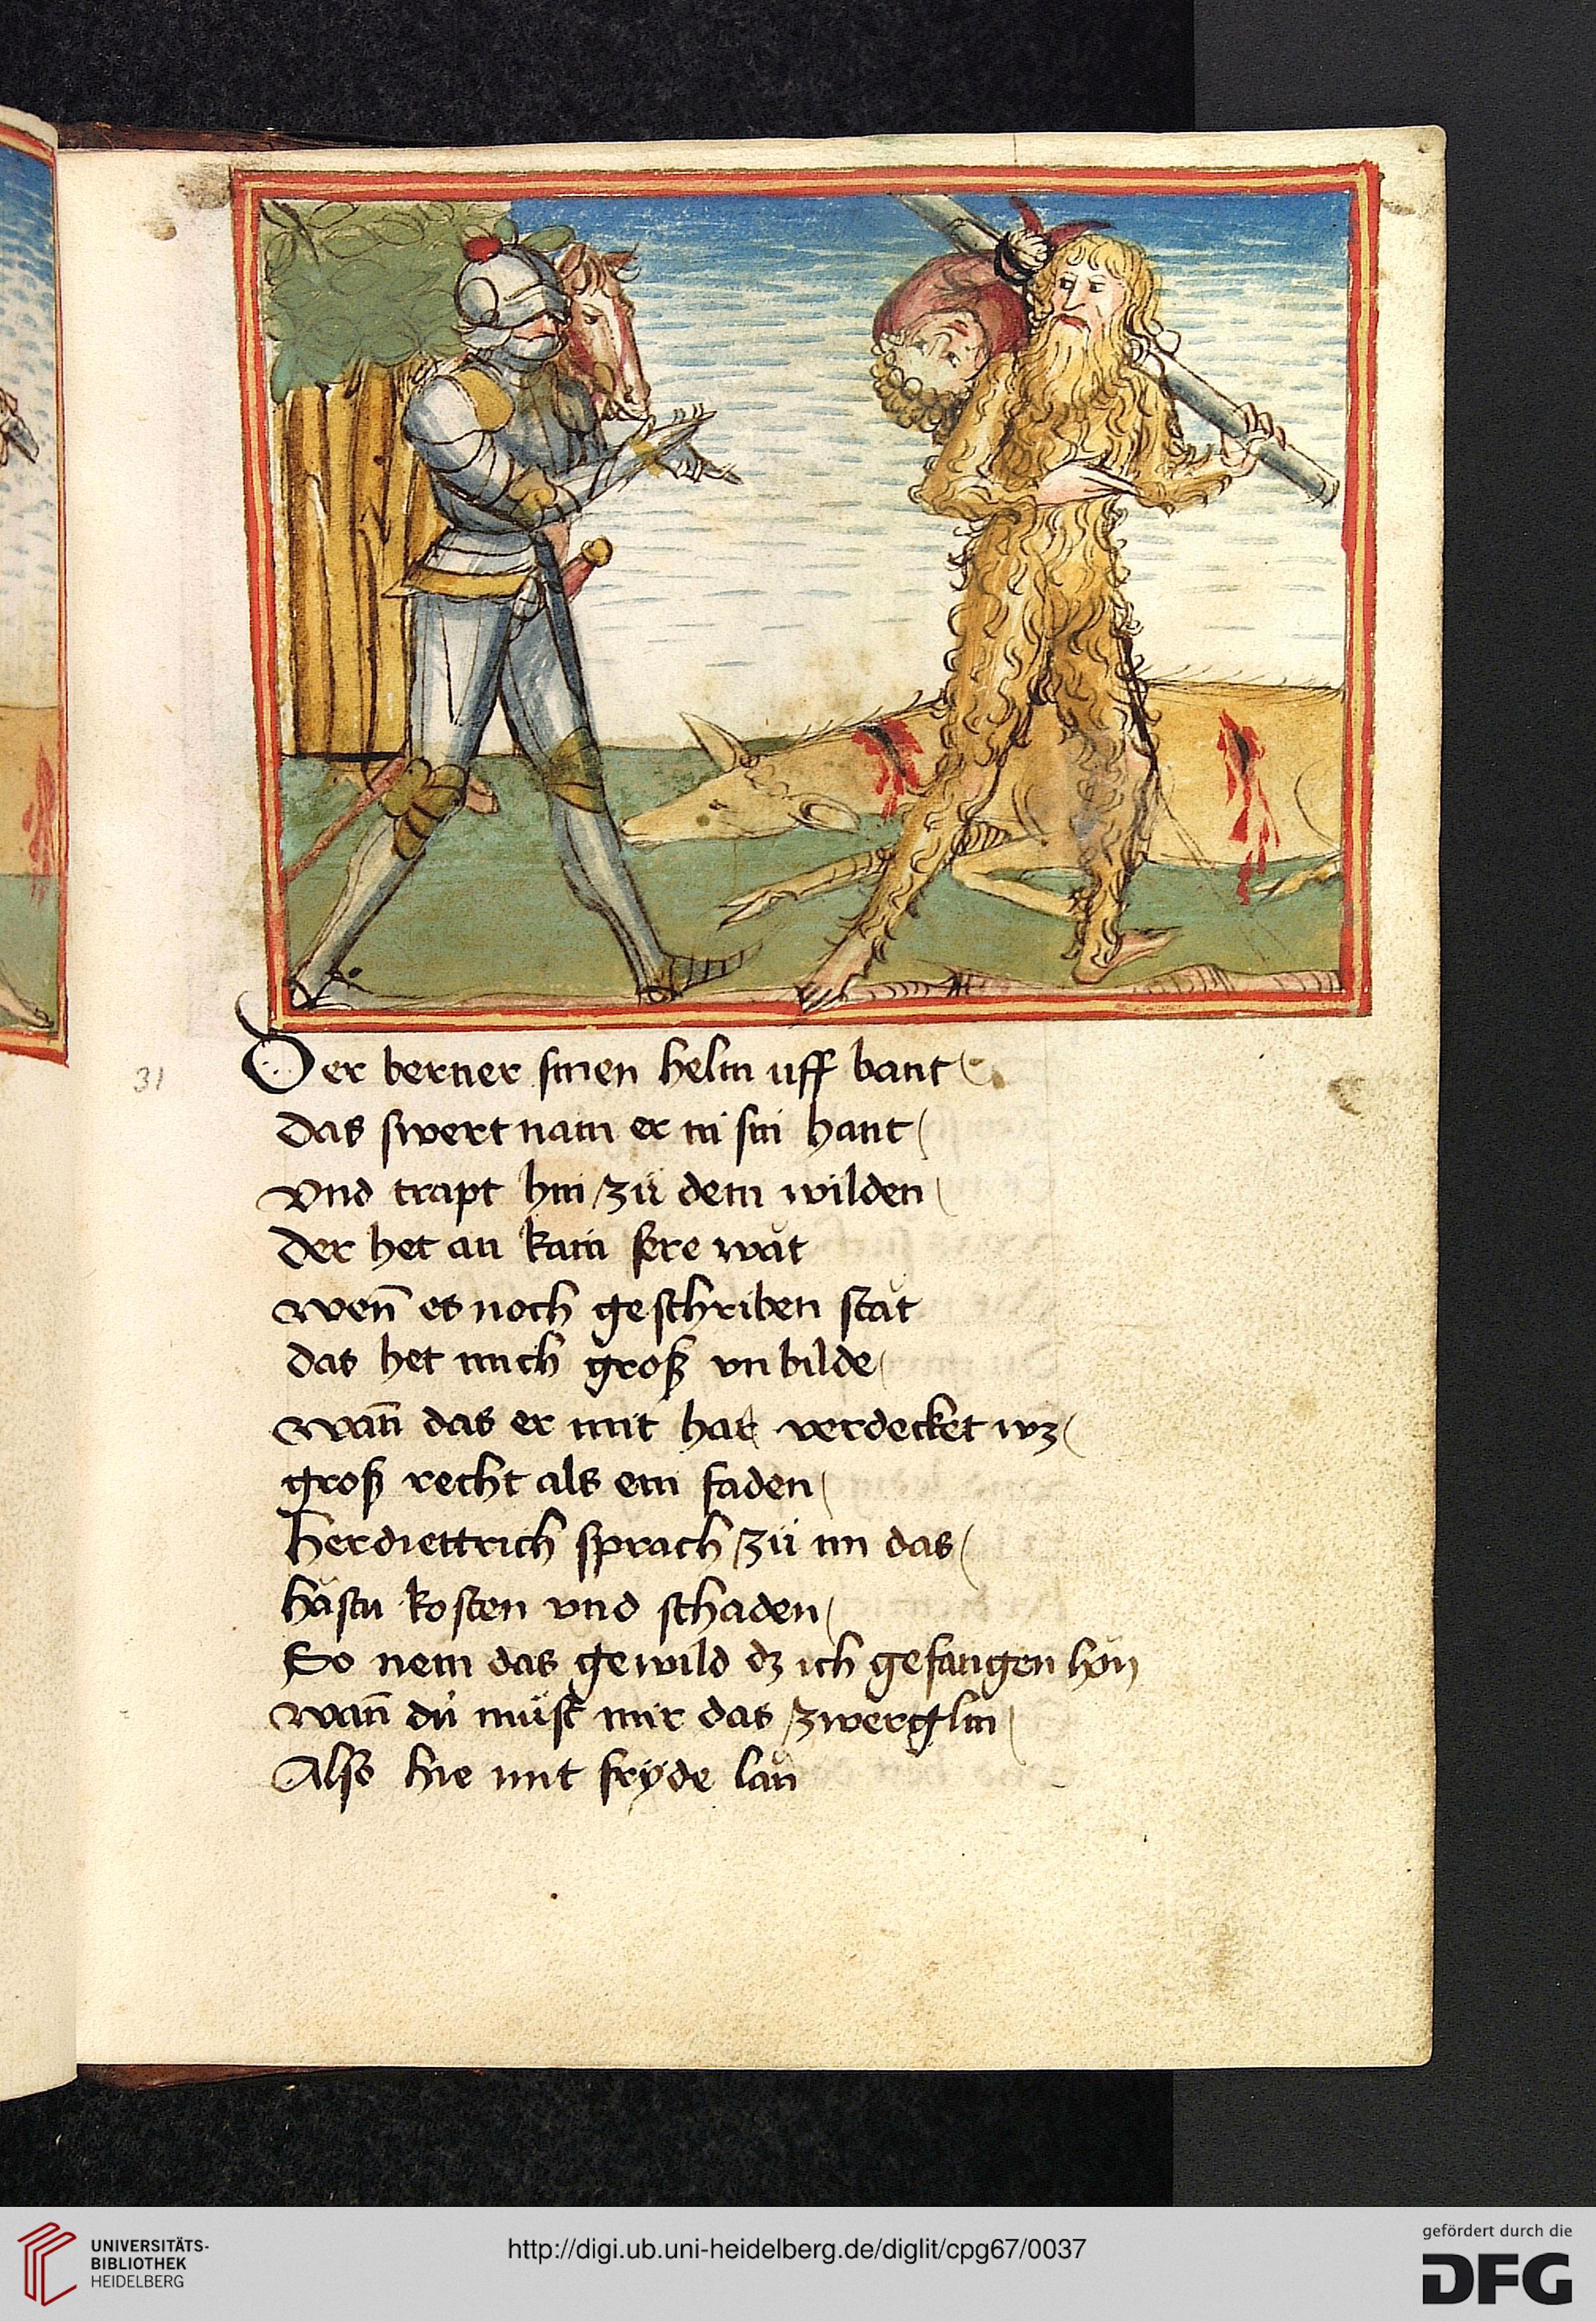 31
Der berner sinen helm uff bant
das swert nam er in sin hant
vnd trapt hin zü dem wilden
der het an kain sere wăt
wen̄ es noch geschriben stăt
das het mich groß vnbilde
wan̄ das er mit har verdecket wz
groß recht als ein faden
her diettrich sprach zü im das
hăstu kosten vnd schaden
So nem das gewild dz ich gefangen hon
wan̄ du müst mir das zwerglin
Also hie mit fryde lăn
UNIVERSITÄTS-
BIBLIOTHEK
HEIDELBERG
http://digi.ub.uni-heidelberg.de/diglit/cpg67/0037
gefördert durch die
DFG